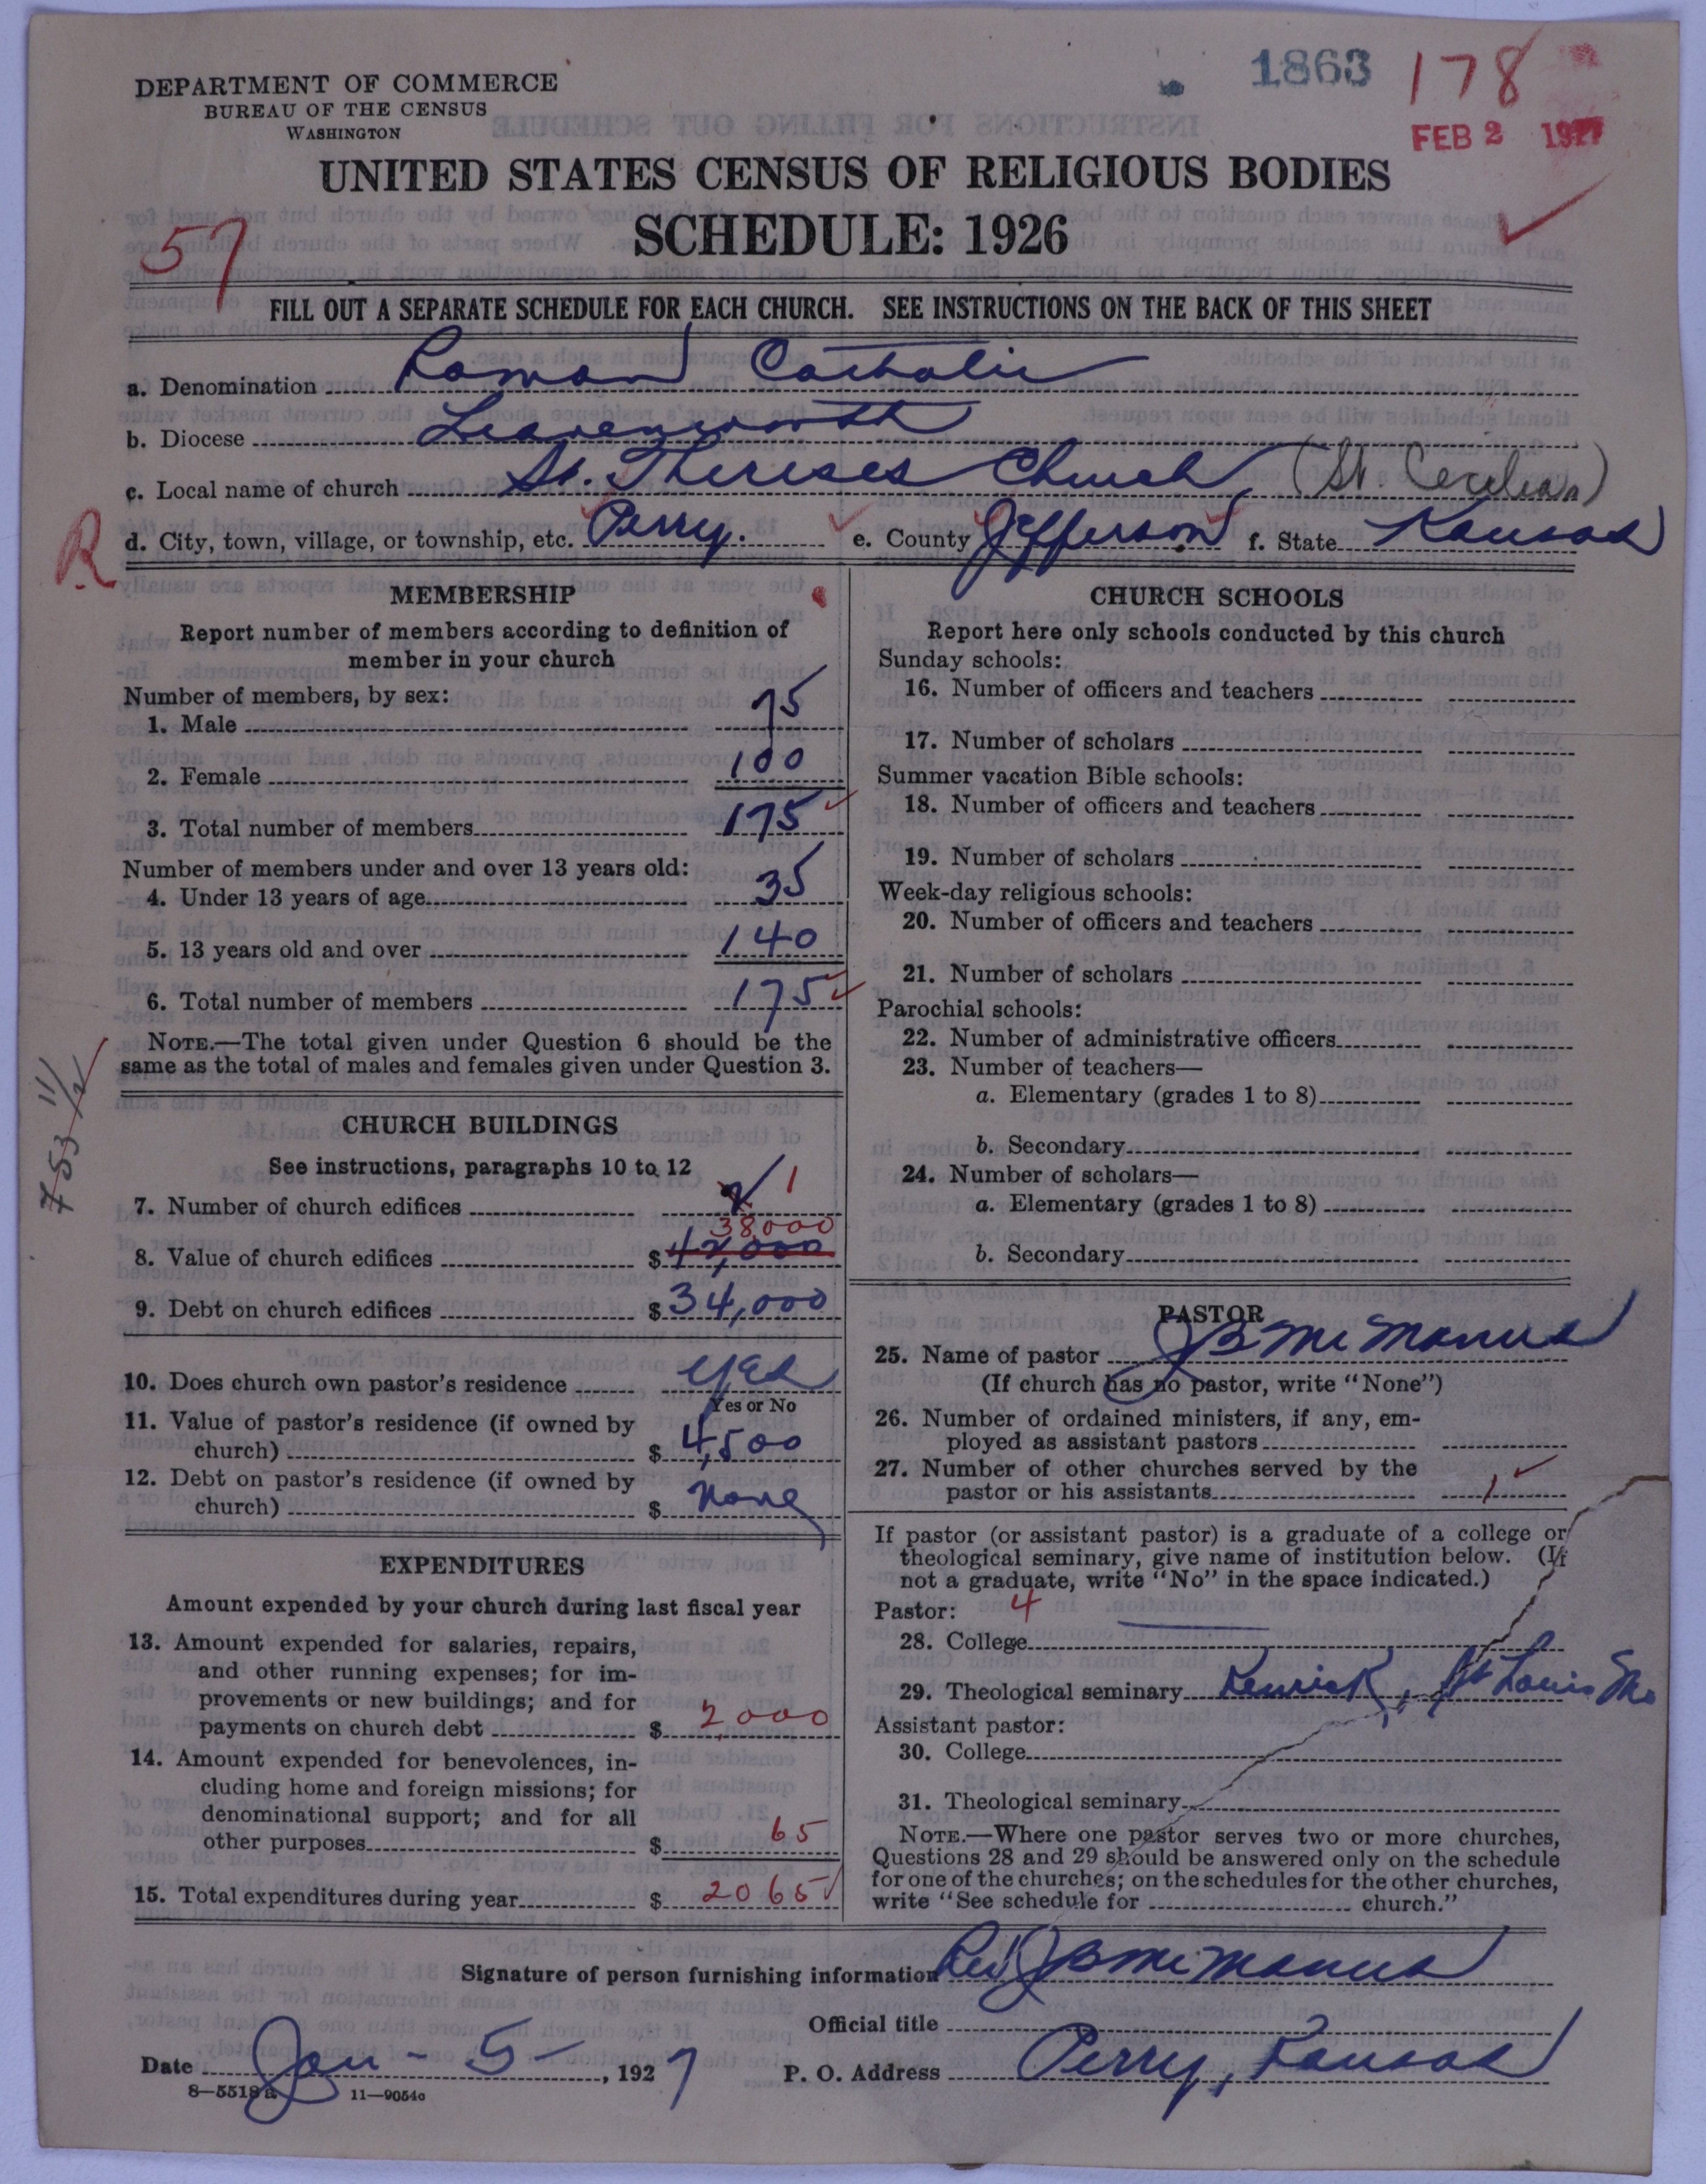 1863 178
DEPARTMENT OF COMMERCE
BUREAU OF THE CENSUS
WASHINGTON
FEB 2 1927
UNITED STATES CENSUS OF RELIGIOUS BODIES
SCHEDULE: 1926
57
FILL OUT A SEPARATE SCHEDULE FOR EACH CHURCH. SEE INSTRUCTIONS ON THE BACK OF THIS SHEET
a. Denomination Roman Catholic
b. Diocese Leavenworth
c. Local name of church St. Thereses Church (St Cecilia's)
R
d. City, town, village, or township, etc. Perry. e. County Jefferson f. State Kansas
MEMBERSHIP
Report number of members according to definition of
member in your church
Number of members, by sex:
1. Male 75
2. Female 100
3. Total number of members 175
Number of members under and over 13 years old:
4. Under 13 years of age 35
5. 13 years old and over 140
6. Total number of members 175
NOTE.—The total given under Question 6 should be the
same as the total of males and females given under Question 3.
CHURCH BUILDINGS
See instructions, paragraphs 10 to 12
7. Number of church edifices 1
38,000
8. Value of church edifices $ 42,000
9. Debt on church edifices $ 34,000
10. Does church own pastor's residence Yes
Yes or No
11. Value of pastor's residence (if owned by
church) $ 4,500
12. Debt on pastor's residence (if owned by
church) $ none
EXPENDITURES
Amount expended by your church during last fiscal year
13. Amount expended for salaries, repairs,
and other running expenses; for im-
provements or new buildings; and for
payments on church debt $ 2,000
14. Amount expended for benevolences, in-
cluding home and foreign missions; for
denominational support; and for all
other purposes $ 65
15. Total expenditures during year $ 2065
CHURCH SCHOOLS
Report here only schools conducted by this church
Sunday schools:
16. Number of officers and teachers
17. Number of scholars
Summer vacation Bible schools:
18. Number of officers and teachers
19. Number of scholars
Week-day religious schools:
20. Number of officers and teachers
21. Number of scholars
Parochial schools:
22. Number of administrative officers
23. Number of teachers—
a. Elementary (grades 1 to 8)
b. Secondary
24. Number of scholars—
a. Elementary (grades 1 to 8)
b. Secondary
PASTOR
25. Name of pastor J B McManus
(If church has no pastor, write "None")
26. Number of ordained ministers, if any, em-
ployed as assistant pastors
27. Number of other churches served by the
pastor or his assistants 1
If pastor (or assistant pastor) is a graduate of a college or
theological seminary, give name of institution below. (If
not a graduate, write "No" in the space indicated.)
Pastor: 4
28. College
29. Theological seminary Kenrick, St Louis Mo
Assistant pastor:
30. College
31. Theological seminary
NOTE.—Where one pastor serves two or more churches,
Questions 28 and 29 should be answered only on the schedule
for one of the churches; on the schedules for the other churches,
write "See schedule for church."
Signature of person furnishing information Rev J B McManus
Official title
Date Jan - 5 - , 1927 P. O. Address Perry, Kansas
8—5518a 11—9054c